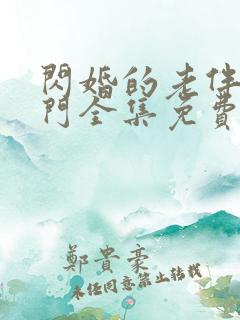 閃婚的老伴
門全集免費
鄭貴豪
未經同意禁止轉載